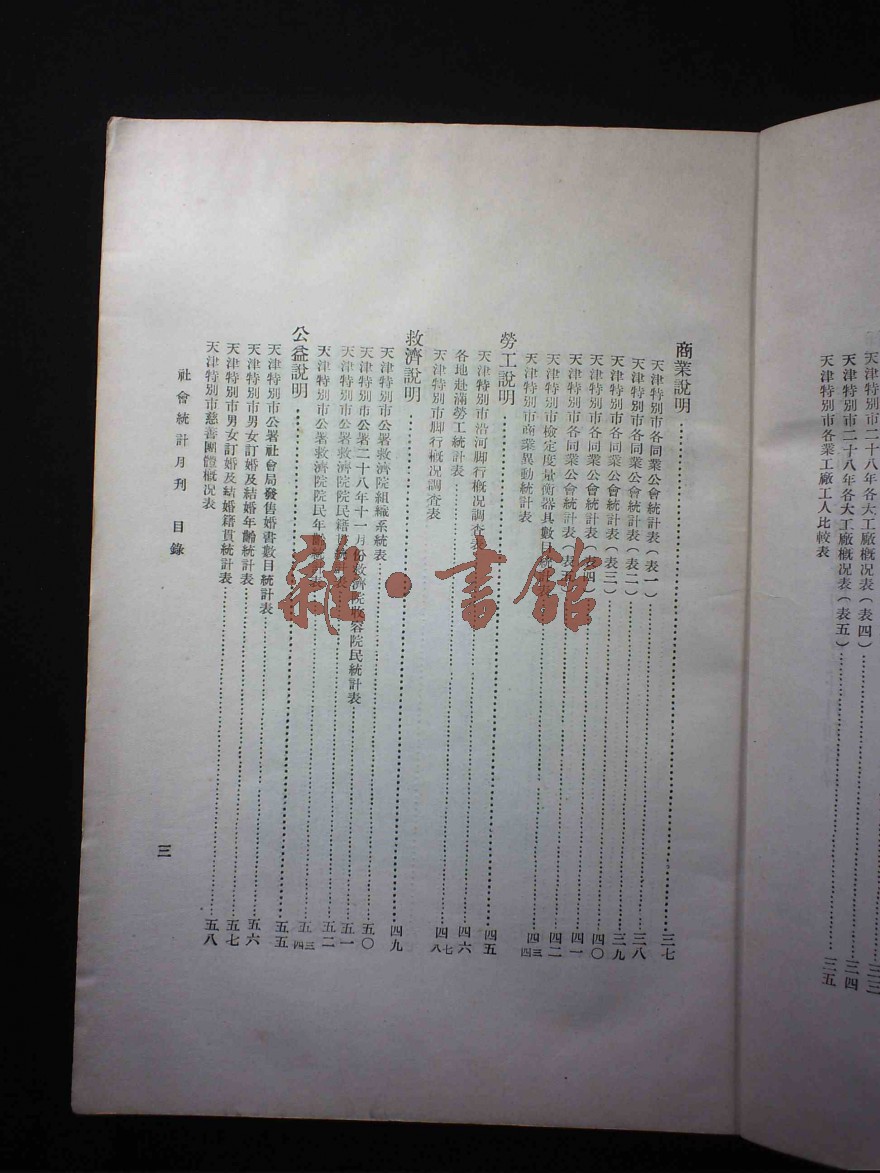 天津特別市二十八年各大工廠概况表(表四)……三三
天津特別市二十八年各大工廠概况表(表五)……三四
天津特別市各業工廠工人比較表……三五
商業說明……三七
天津特別市各同業公會統計表(表一)……三八
天津特別市各同業公會統計表(表二)……三九
天津特別市各同業公會統計表(表三)……四〇
天津特別市各同業公會統計表(表四)……四一
天津特別市各同業公會統計表(表五)……四二
天津特別市檢定度量衡器具數目統
天津特別市商業異動統計表
四三
四四
勞工說明……四五
天津特別市沿河脚行概况調查表……四六
各地赴滿勞工統計表
天津特別市脚行概况調查表
四七
四八
救濟說明……四九
天津特別市公署救濟院組織系統表……五〇
天津特別市公署二十八年十一月份救濟院收容院民統計表……五一
天津特別市公署救濟院院民籍貫統計表……五二
天津特別市公署救濟院院民年齡統計表……五三
五四
公益說明……五五
天津特別市公署社會局發售婚書數目統計表……五六
天津特別市男女訂婚及結婚年齡統計表……五七
天津特別市男女訂婚及結婚籍貫統計表……五八
天津特別市慈善團體概况表
社會統計月刊 目錄
三
雜·書館